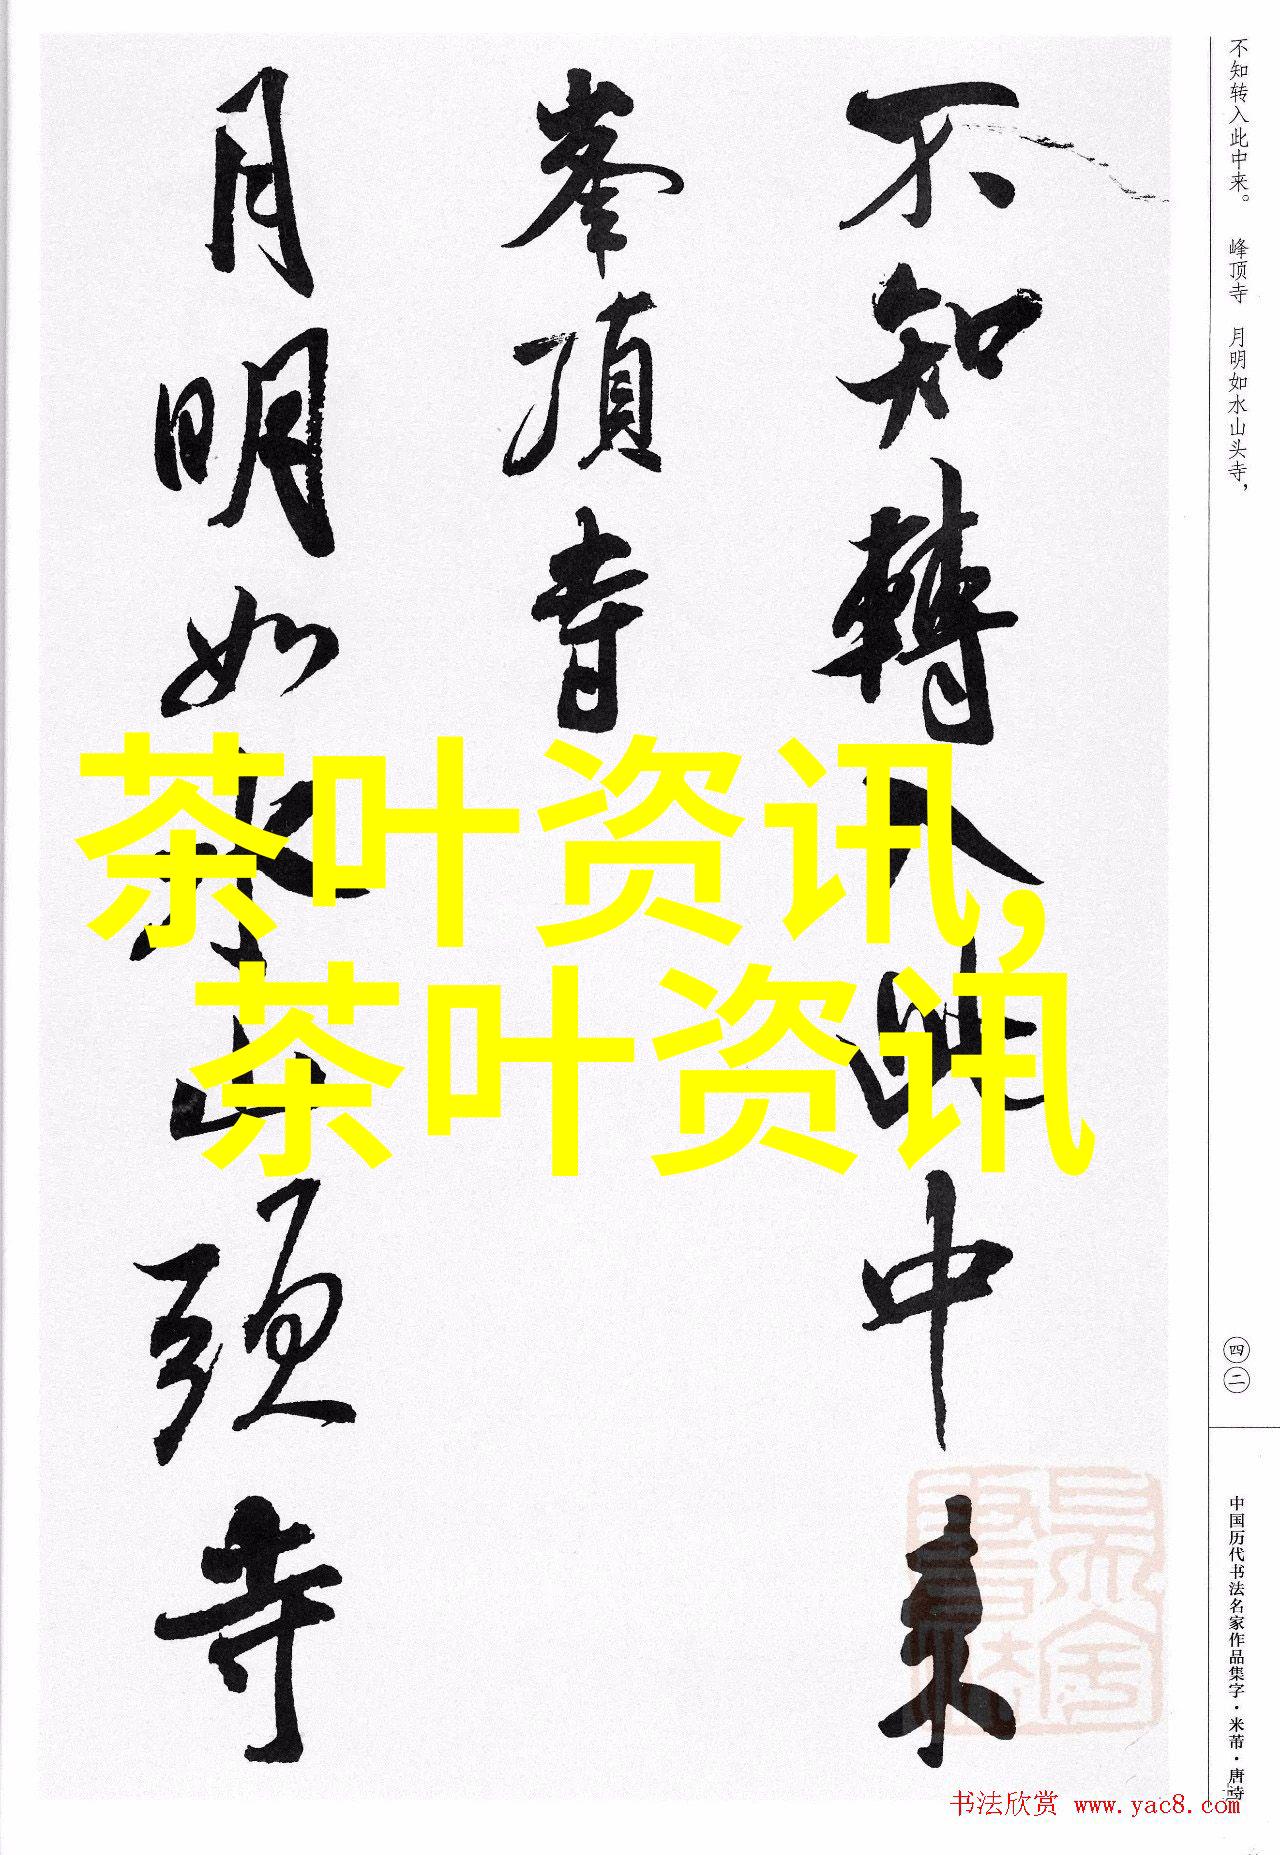 不知轉入此中来
峯頂寺
月明如水山頭寺
茶叶资讯,
茶叶资讯
不知转入此中来。 峰顶寺 月明如水山头寺,
四二
中国历代书法名家作品集字·米芾·唐诗
书法欣赏 www.yac8.com